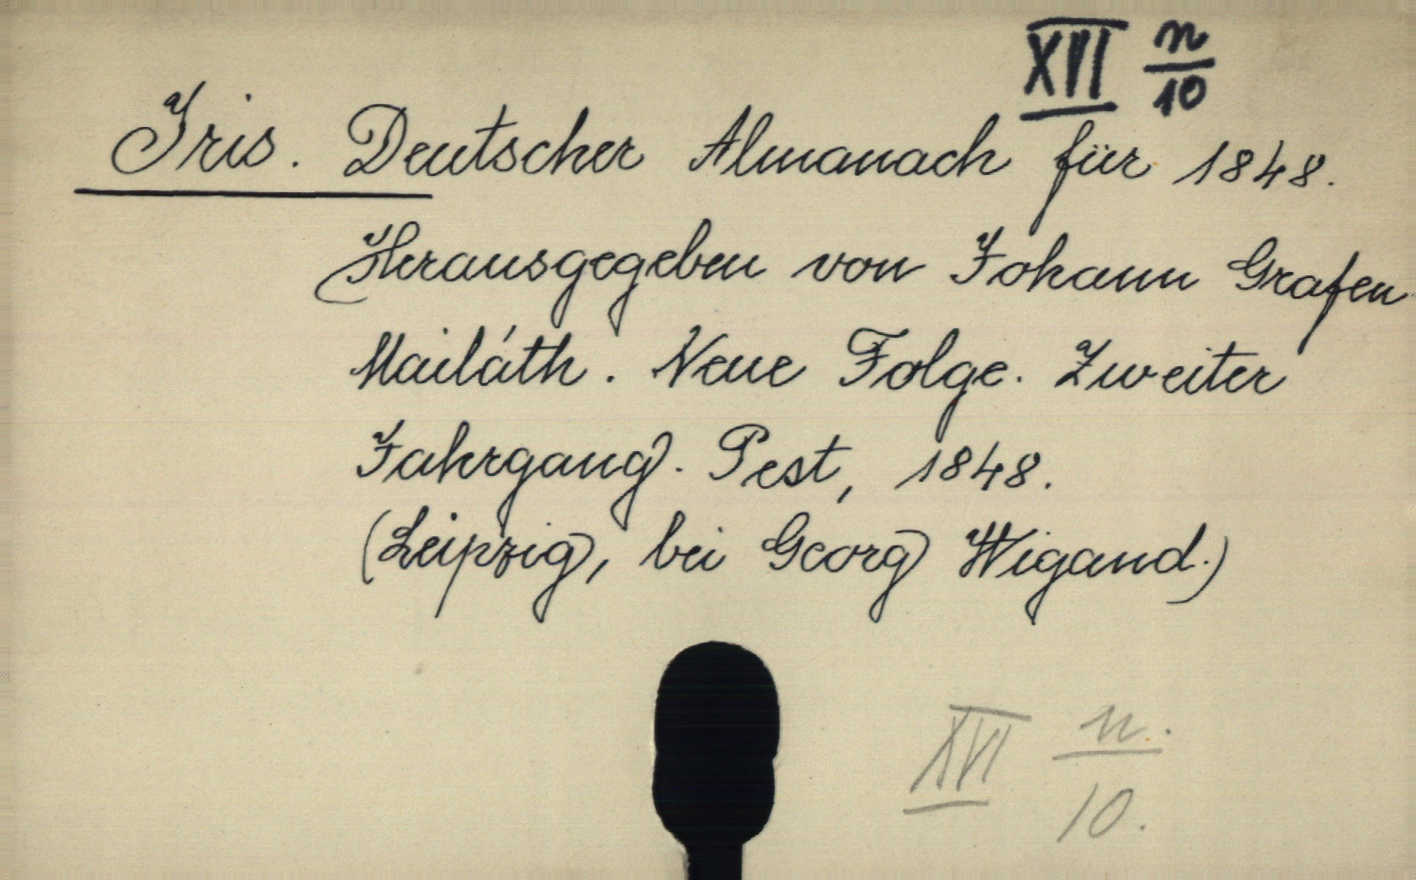 XVI n/10
Iris. Deutscher Almanach für 1848.
Herausgegeben von Johann Grafen
Mailáth. Neue Folge. Zweiter
Jahrgang. Pest, 1848.
(Leipzig, bei Georg Wigand.)
XVI n./10.